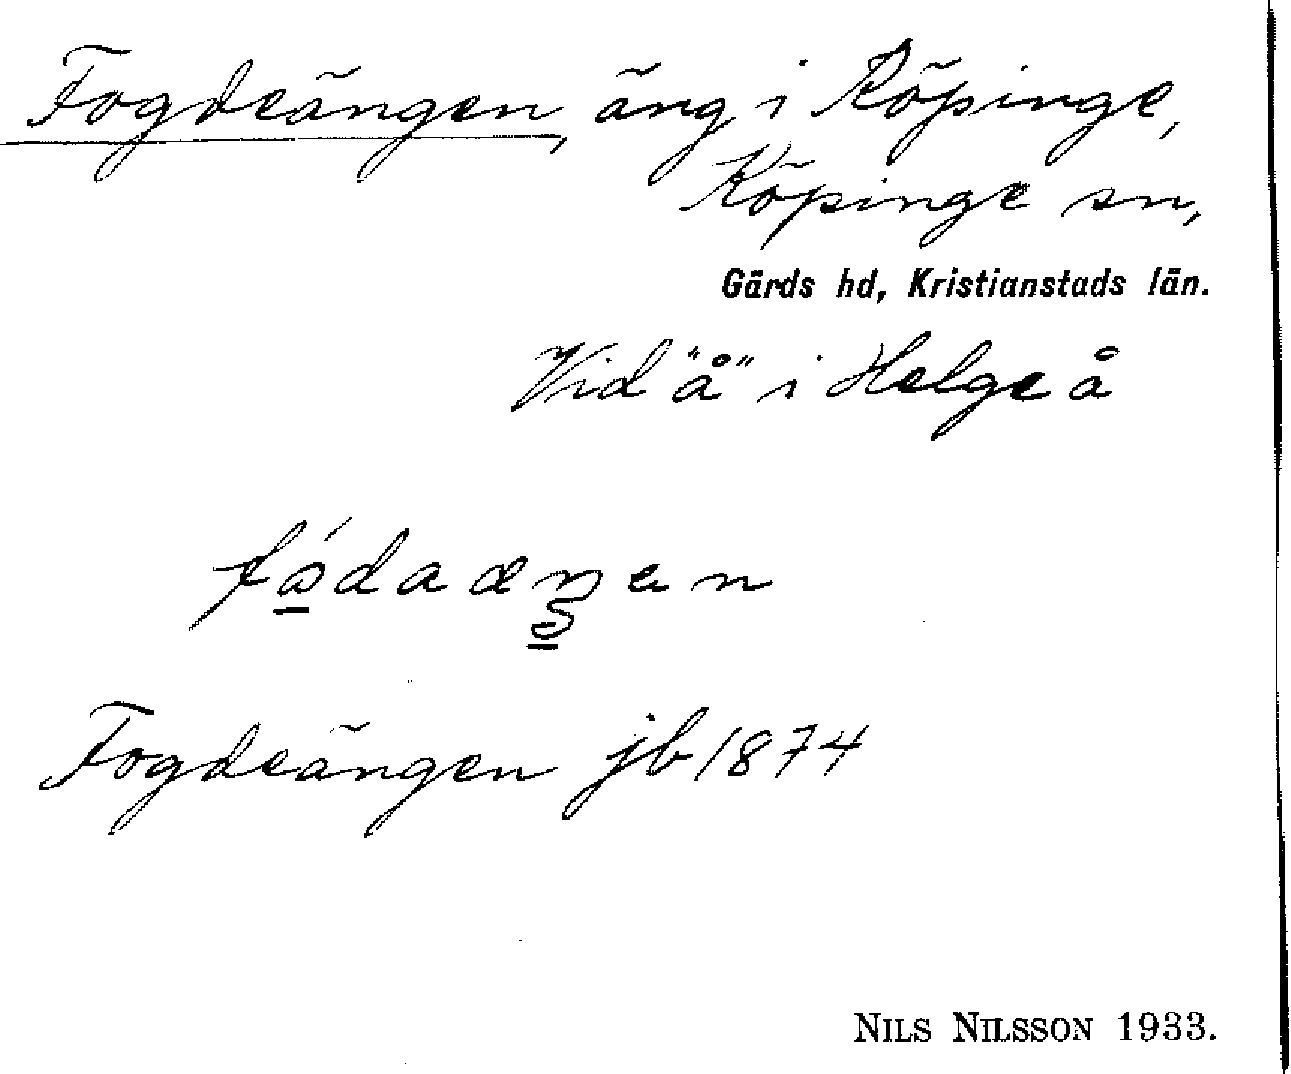 Fogdeängen, äng i Köpinge,
Köpinge sn,
Gärds hd, Kristianstads län.
Vid "å" i Helgeå
Fogdeängen jb 1874
NILS NILSSON 1933.